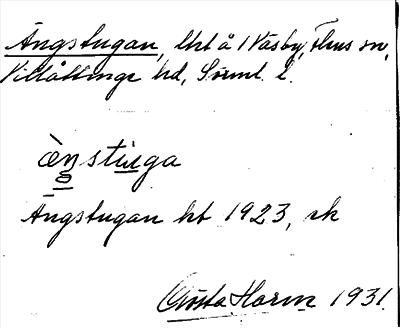 Ängstugan, lht å 1 Väsby, Flens sn,
Villåttinge hd, Sörml. l.
ä̀ŋstu̲ga
Ängstugan ht 1923, rk
Gösta Harm 1931.